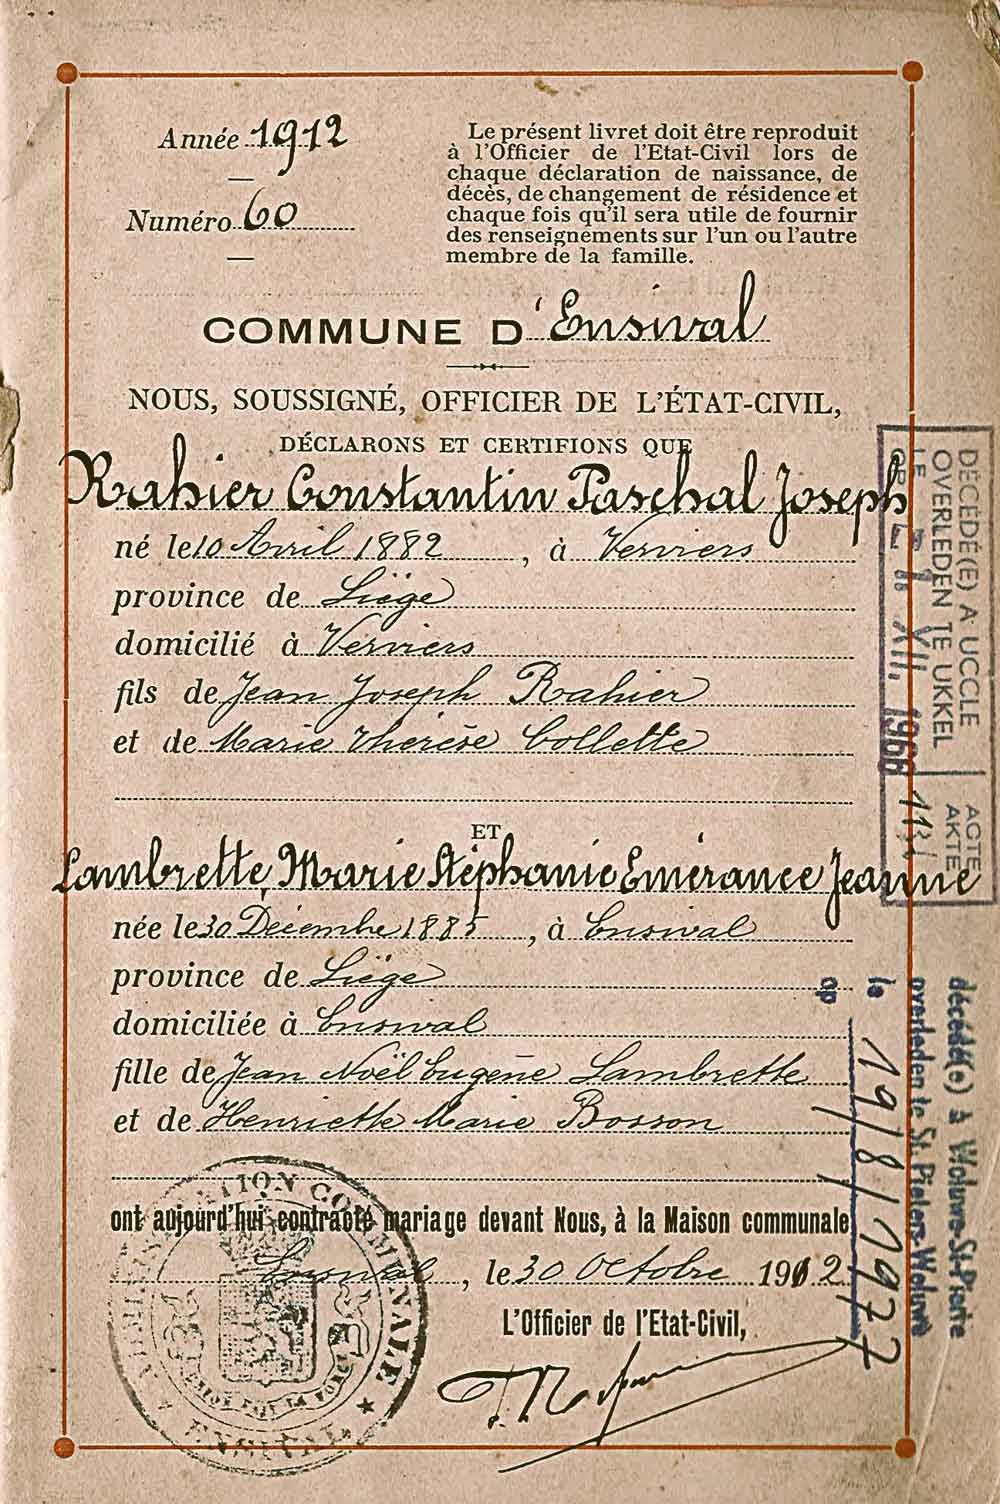 Année 1912
Numéro 60
Le présent livret doit être reproduit
à l'Officier de l'Etat-Civil lors de
chaque déclaration de naissance, de
décès, de changement de résidence et
chaque fois qu'il sera utile de fournir
des renseignements sur l'un ou l'autre
membre de la famille.
COMMUNE D'Ensival
NOUS, SOUSSIGNÉ, OFFICIER DE L'ÉTAT-CIVIL,
DÉCLARONS ET CERTIFIONS QUE
Rahier Constantin Paschal Joseph
né le 10 Avril 1882, à Verviers
province de Liège
domicilié à Verviers
fils de Jean Joseph Rahier
et de Marie Thérèse Collette
ET
Lambrette, Marie Stéphanie Emérance Jeanne
née le 30 Décembre 1885, à Ensival
province de Liège
domiciliée à Ensival
fille de Jean Noël Eugène Lambrette
et de Henriette Marie Bosson
ont aujourd'hui contracté mariage devant Nous, à la Maison communale
Ensival, le 30 Octobre 1912
L'Officier de l'Etat-Civil,
ADMINISTRATION COMMUNALE
ENSIVAL
DÉCÉDÉ(E) A UCCLE
OVERLEDEN TE UKKEL
LE
OP
XII. 1966
ACTE
AKTE
décédé(e) à Woluwe-St-Pierre
overleden te St. Pieters-Woluwe
le
op
19/8/1977